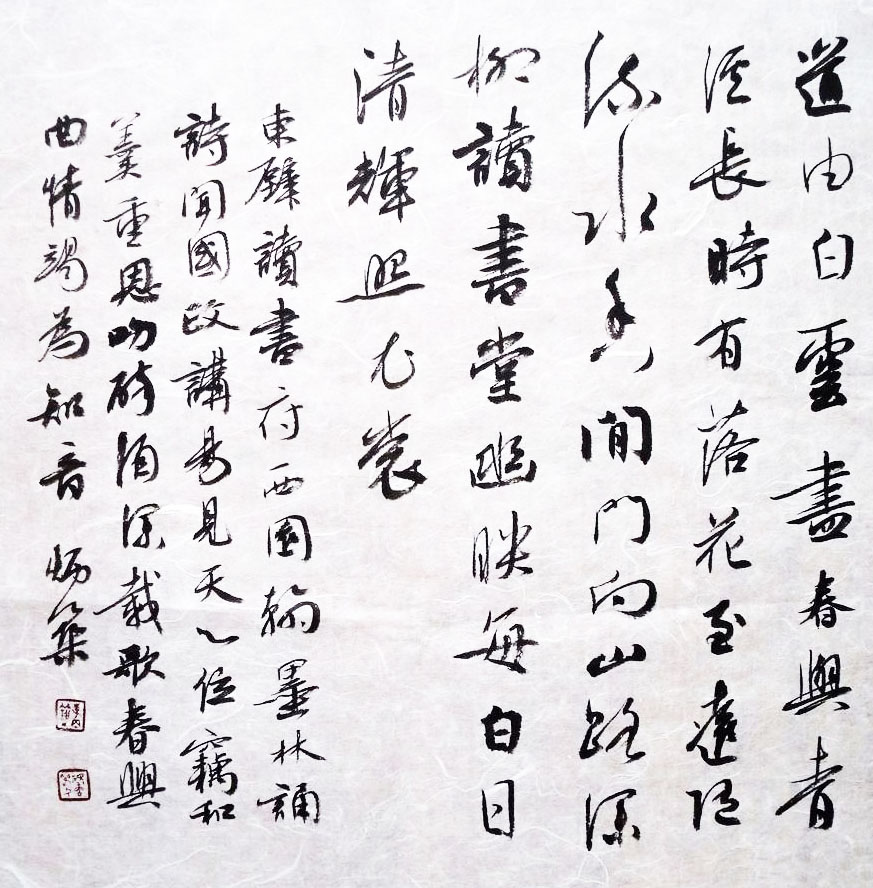 道由白雲盡春與青
溪長時有落花至遠隨
流水香閒門向山路深
柳讀書堂幽映每白日
清輝照衣裳
東壁讀書府西園翰墨林誦
詩聞國政講易見天心位竊和
羹重恩叨醉酒深載歌春興
曲情竭為知音 炳